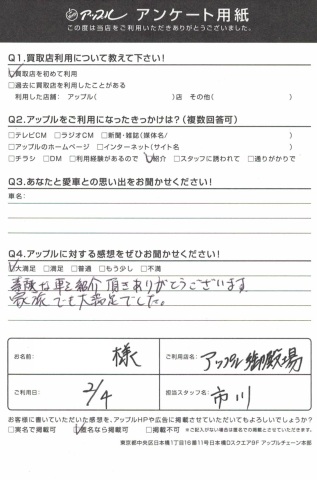 アップル アンケート用紙
この度は当店をご利用いただきありがとうございました。
Q1.買取店利用について教えて下さい!
☑買取店を初めて利用
□過去に買取店を利用したことがある
利用した店舗: アップル( )店 その他( )
Q2.アップルをご利用になったきっかけは?(複数回答可)
□テレビCM □ラジオCM □新聞・雑誌(媒体名/ )
□アップルのホームページ □インターネット(サイト名 )
□チラシ □DM □利用経験があるので ☑紹介 □スタッフに誘われて □通りがかりで
Q3.あなたと愛車との思い出をお聞かせください!
車名:
Q4.アップルに対する感想をぜひお聞かせください!
☑大満足 □満足 □普通 □もう少し □不満
素敵な車を紹介頂きありがとうございます
家族でも大満足でした。
お名前: 様
ご利用店名: アップル御殿場
ご利用日: 2/4
担当スタッフ名: 市川
お客様に書いていただいた感想を、アップルHPや広告に掲載させていただいてもよろしいでしょうか?
□実名で掲載可 ☑匿名なら掲載可 □掲載不可 ※ご記入がない場合は匿名での掲載とさせていただきます。
東京都中央区日本橋1丁目16番11号日本橋Dスクエア9F アップルチェーン本部